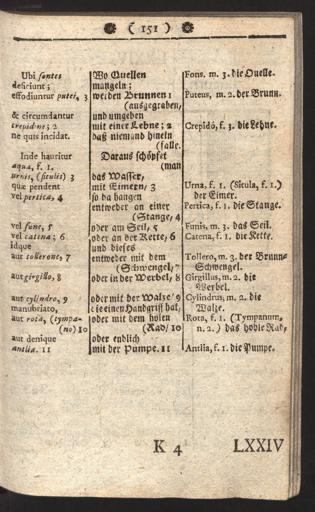 ( 151 )
Ubi fontes
deficiunt;
effodiuntur putei, 3
& circumdantur
crepidine; 2
ne quis incidat.
Inde hauritur
aqua, f. 1.
urnis, (situlis) 3
quæ pendent
vel pertica, 4
vel fune, 5
vel catena; 6
idque
aut tollenone, 7
aut girgillo, 8
aut cylindro, 9
manubriato,
aut rota, (tympa-
(no) 10
aut denique
antlia. 11
Wo Quellen
mangeln;
werden Brunnen 1
(ausgegraben,
und umgeben
mit einer Lehne; 2
daß niemand hinein
(falle.
Daraus schöpfet
(man
das Wasser,
mit Eimern/ 3
so da hangen
entweder an einer
(Stange, 4
oder am Seil, 5
oder an der Kette, 6
und dieses
entweder mit dem
(Schwengel, 7
oder in der Werbel, 8
oder mit der Walze/ 9
die einen Handgriff hat,
oder mit dem holen
(Rad/ 10
oder endlich
mit der Pumpe. 11
Fons, m. 3. die Quelle.
Puteus, m. 2. der Brunn.
Crepido, f. 3. die Lehne.
Urna, f. 1. (Situla, f. 1.)
der Eimer.
Pertica, f. 1. die Stange.
Funis, m. 3. das Seil.
Catena, f. 1. die Kette.
Tolleno, m. 3. der Brunn-
Schwengel.
Girgillus, m. 2. die
Werbel.
Cylindrus, m. 2. die
Walze.
Rota, f. 1. (Tympanum,
n. 2.) das hohle Rad,
Antlia, f. 1. die Pumpe.
K 4
LXXIV